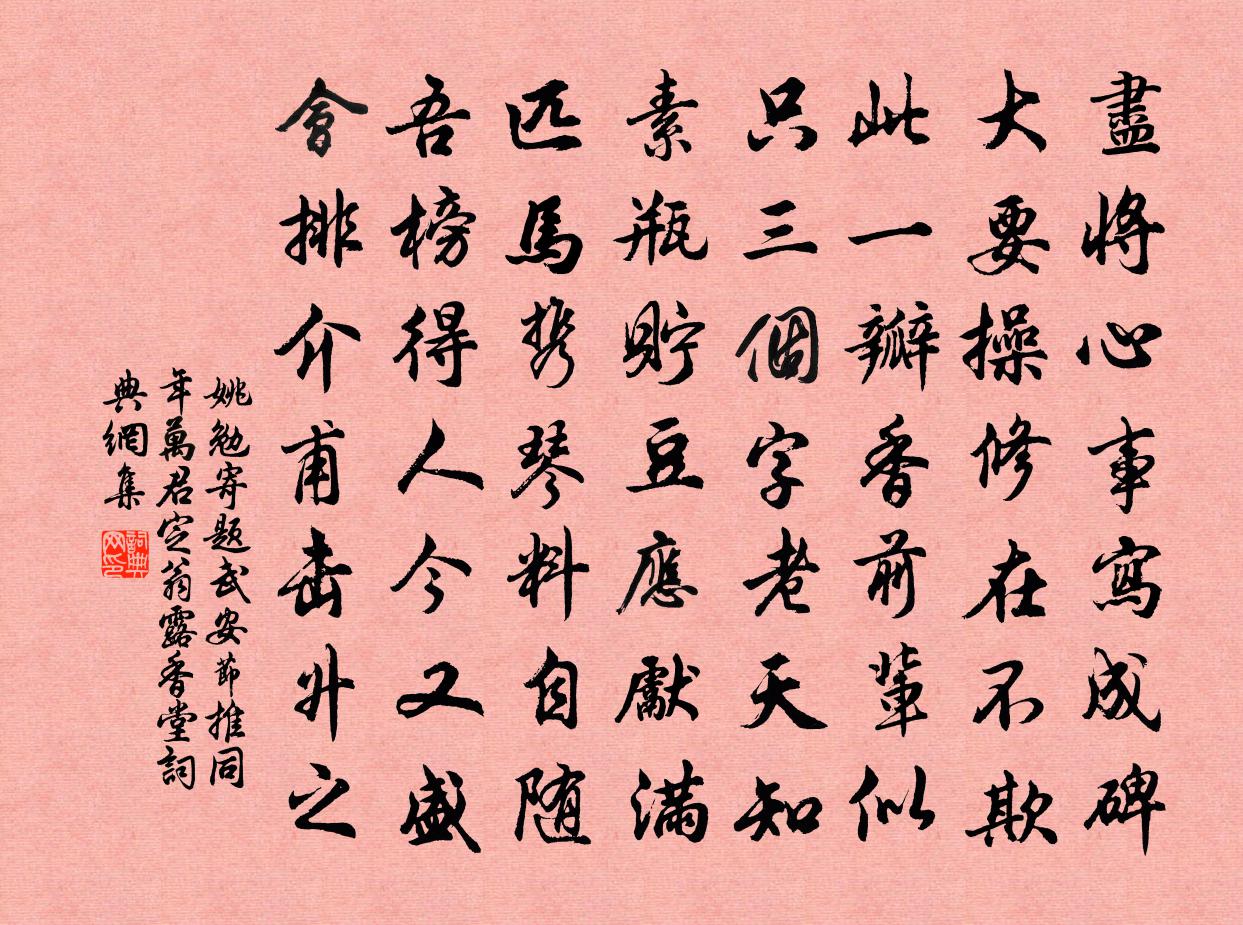 盡將心事寫成碑
大要操修在不欺
此一瓣香前輩似
只三個字老天知
素瓶貯豆應獻滿
匹馬携琴料自随
吾榜得人今又盛
會排介甫击升之
姚勉寄题武安節推同
年萬君定翁露香堂詞
典網集
詞典网印